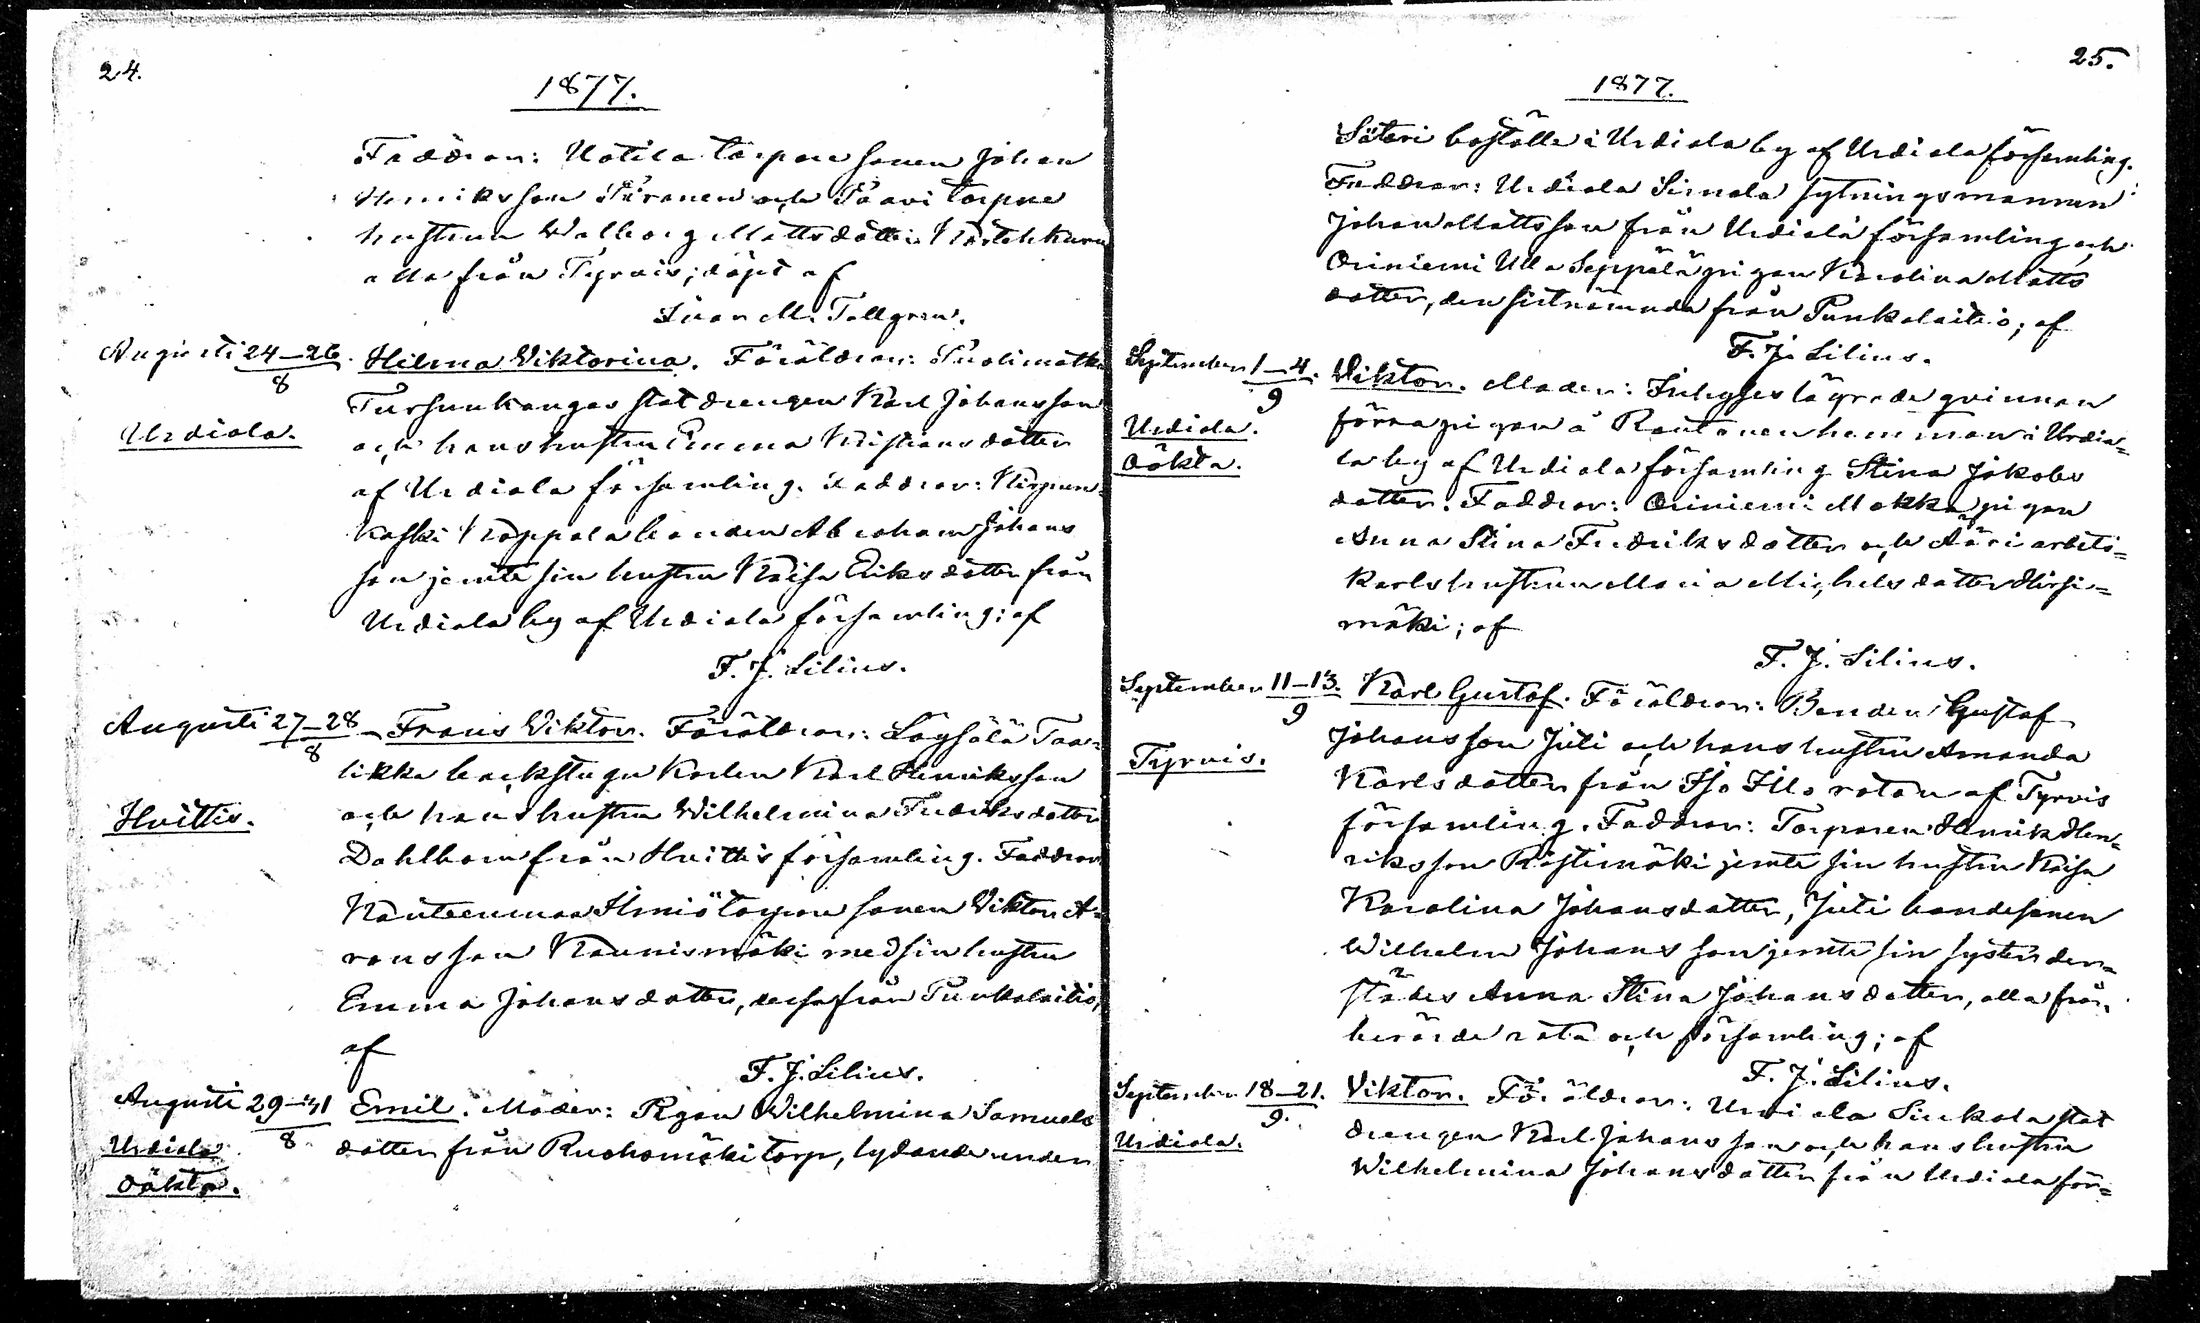 24.
1877.
Faddrar: Uotila torpare sonen Johan
Henriksson och Paavi torpare
hustrun Walborg Mattsdotter
alla från Tyrvis; döpt af
Ivar M. Tallgren.
Augusti 24–26/8. Hilma Viktorina. Föräldrar: Puolimatka
Tursunkangas statdrengen Karl Johansson
Urdiala.
och hans hustru Emma Kristiansdotter
af Urdiala församling. Faddrar: Kirpun-
koski Knappala bonden Abraham Johans
son jemte sin hustru Kaisa Eriksdotter från
Urdiala by af Urdiala församling; af
F. J. Lilius.
Augusti 27–28/8 – Frans Viktor. Föräldrar: Löysälä Taa-
likka backstugukarlen Karl Henriksson
Huittis.
och hans hustru Wilhelmina Fredriksdotter
Dahlbom från Huittis församling. Faddrar
Kanteenmaa torpare sonen Viktor A-
ronsson Kaunismäki med sin hustru
Emma Johansdotter, dessa från Punkalaitio,
af
F. J. Lilius.
Augusti 29–31/8 Emil. Moder: Pigan Wilhelmina Samuels
Urdiala
dotter från Ruohomäki torp, lydande under
oäkta.
25.
1877.
Säteri boställe i Urdiala by af Urdiala församling.
Faddrar: Urdiala Simola sytningsmannen
Johan Mattsson från Urdiala församling och
Oriniemi Ulla Seppälä pigan Karolina Matts
dotter, den sistnämnda från Punkalaitio; af
F. J. Lilius.
September 1–4/9. Viktor. Moder: Inhyses lägrade qvinnan
Urdiala.
förra pigan å Rautanen hemman i Urdia-
oäkta.
la by af Urdiala församling Stina Jakobs
dotter. Faddrar: Oriniemi Mokka pigan
Anna Stina Fredriksdotter och Ääri arbets-
karlshustrun Maria Michelsdotter Hirsi-
mäki; af
F. J. Lilius.
September 11–13/9. Karl Gustaf. Föräldrar: Bonden Gustaf
Johansson Juti och hans hustru Amanda
Tyrvis.
Karlsdotter från Iso Illo rotan af Tyrvis
församling. Faddrar: Torparen Henrik Hen-
riksson Ristimäki jemte sin hustru Kaisa
Karolina Johansdotter, Juti bondesonen
Wilhelm Johansson jemte sin syster der-
städes Anna Stina Johansdotter, alla från
berörde rota och församling; af
F. J. Lilius.
September 18–21/9. Viktor. Föräldrar: Urdiala Sinkola stat
Urdiala.
drengen Karl Johansson och hans hustru
Wilhelmina Johansdotter från Urdiala för-